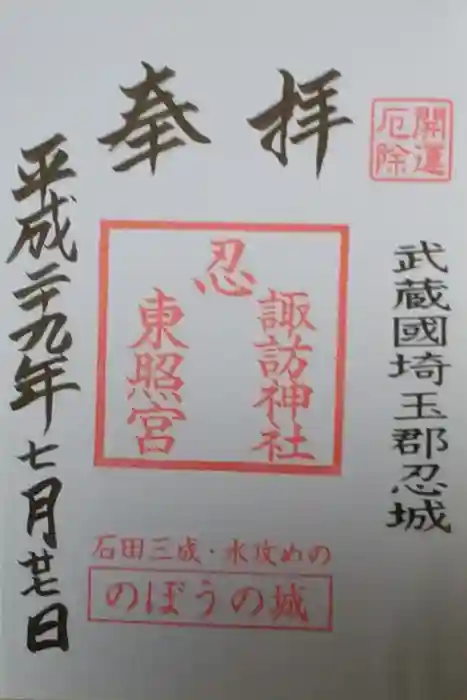 開運
厄除
奉拝
武蔵國埼玉郡忍城
忍
諏訪神社
東照宮
石田三成・水攻めの
のぼうの城
平成二十九年七月廿七日